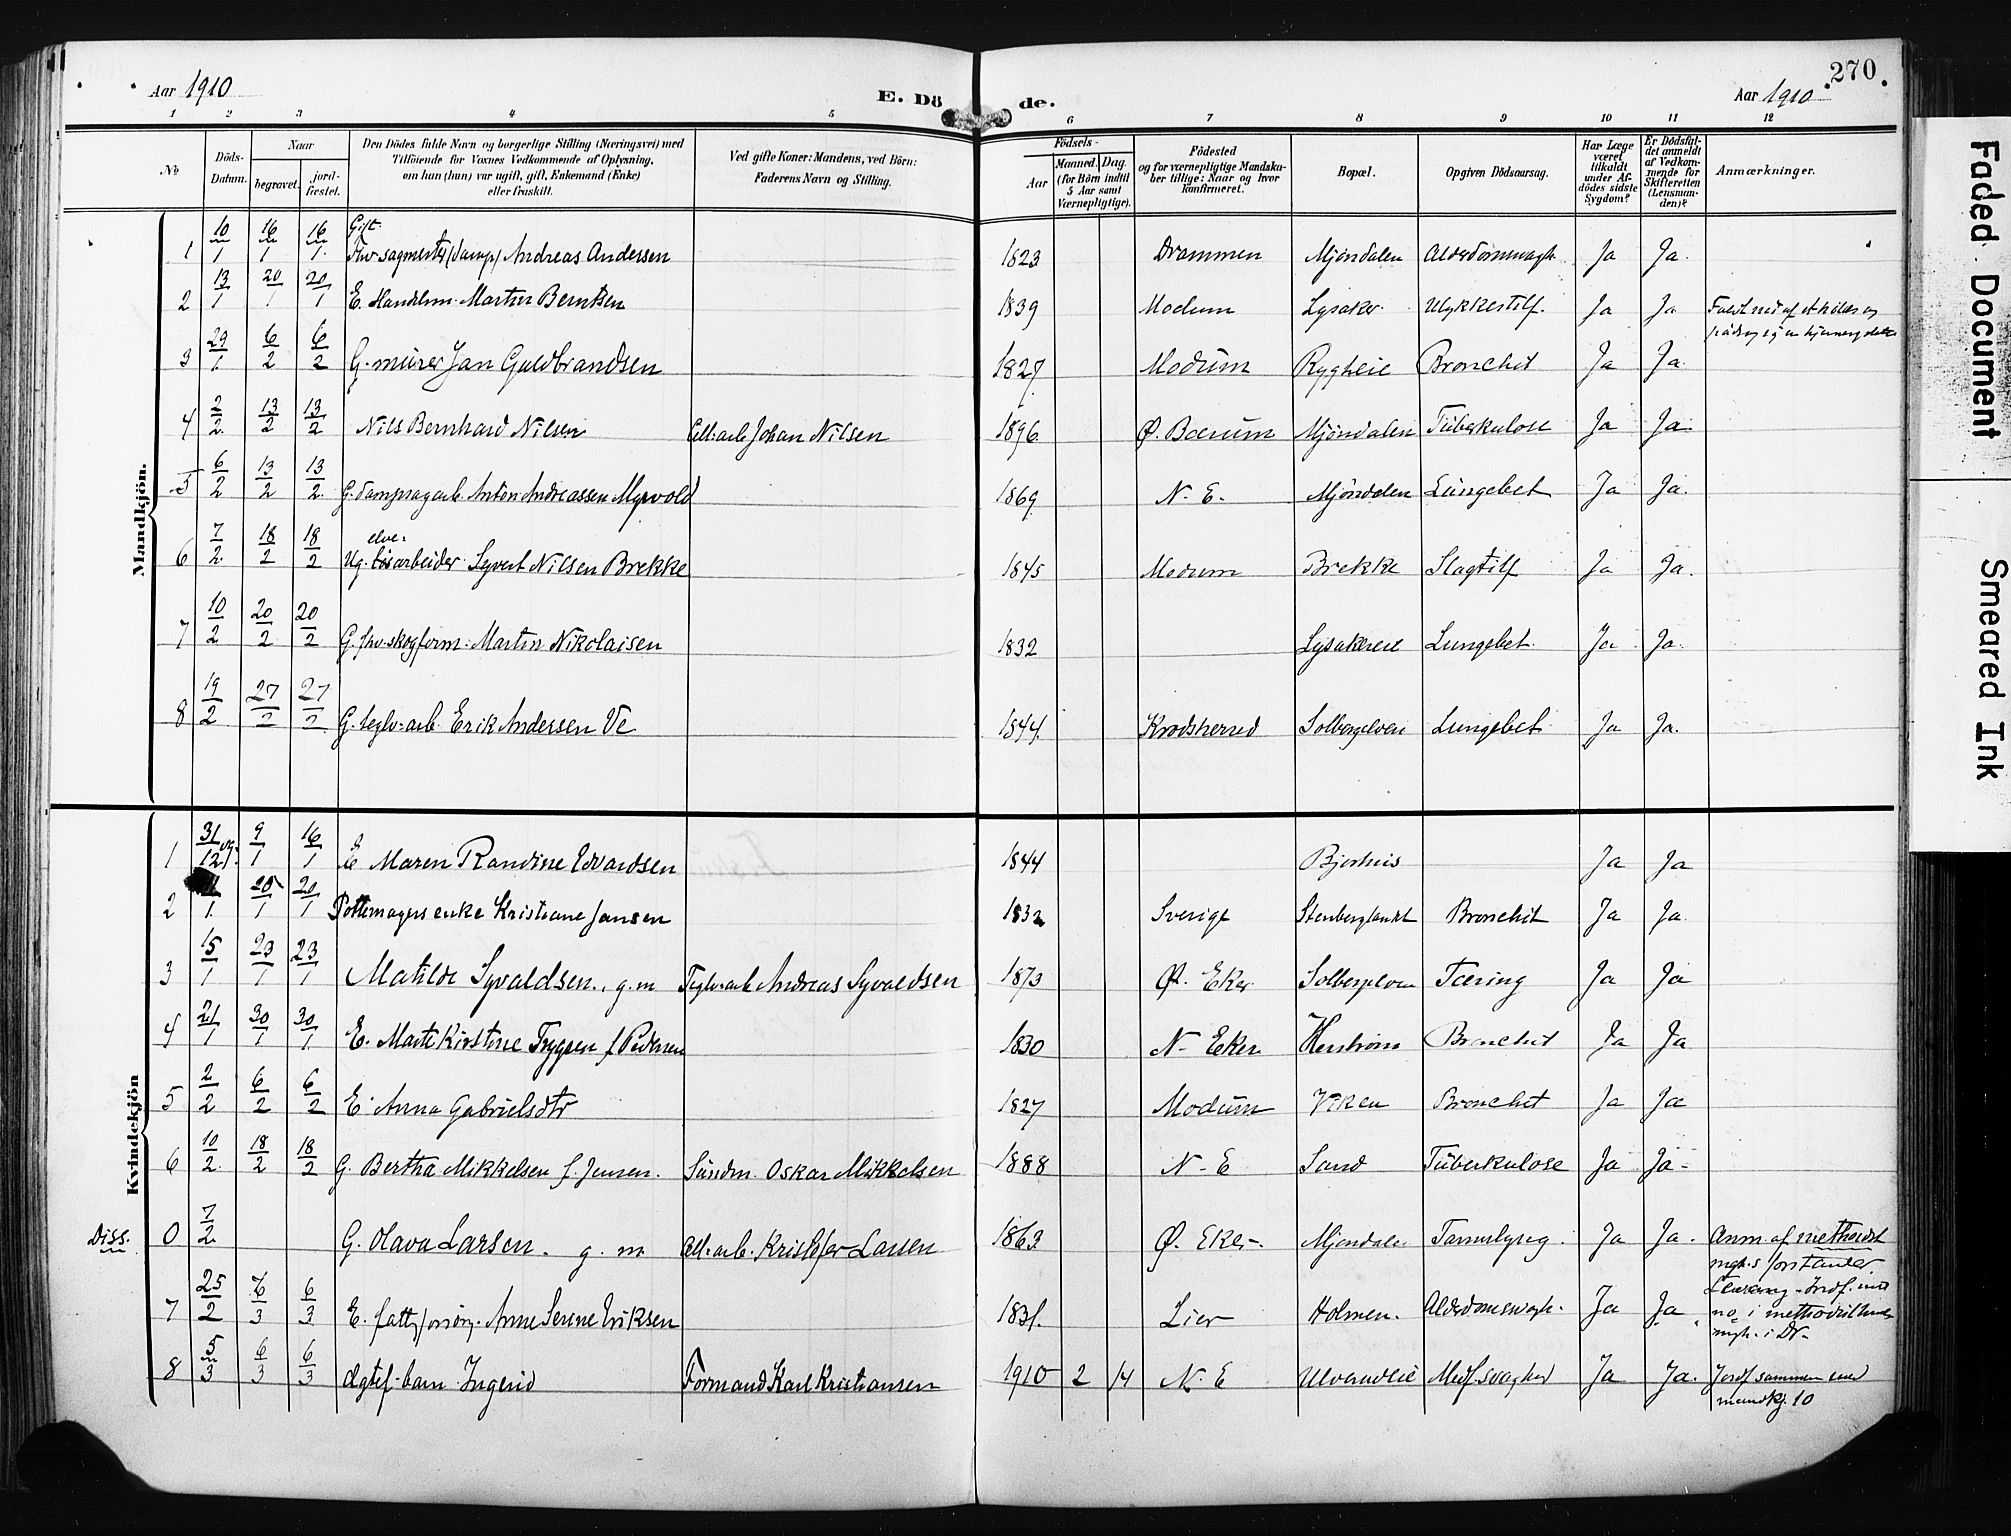 Aar 1910
E. Dö de.
Aar 1910.
270.
1 2 3 4 5 6 7 8 9 10 11 12
No
Döds-Datum.
Naar
begravet.
jord-fæstet.
Den Dödes fulde Navn og borgerlige Stilling (Næringsvei) med
Tilföiende for Voxnes Vedkommende af Oplysning,
om han (hun) var ugift, gift, Enkemand (Enke)
eller fraskilt.
Ved gifte Koner: Mandens, ved Börn:
Faderens Navn og Stilling.
Födsels-
Aar
Maaned. Dag.
(for Börn indtil
5 Aar samt
Værnepligtige).
Födested
og for værnepligtige Mandska-
ber tillige: Naar og hvor
konfirmeret.
Bopæl.
Opgiven Dödsaarsag.
Har Læge
været
tilkaldt
under Af-
dödes sidste
Sygdom?
Er Dödsfal-
det anmeldt
af Vedkom-
mende for
Skifteretten
(Lensman-
den)?
Anmærkninger.
Mandkjön.
Gift
1 10/1 16/1 16/1 Andreas Andersen 1823 Drammen Mjöndalen Ja Ja.
2 13/1 20/1 20/1 E. Martin Berntsen 1839 Modum Lysaker Ulykkestilf. Ja Ja
3 29/1 6/2 6/2 G. murer Jan Guldbrandsen 1827 Modum Rygheie Bronchit Ja Ja
4 2/2 13/2 13/2 Nils Bernhard Nilsen Cell.arb. Johan Nilsen 1896 Ø. Bærum Mjöndalen Tüberkulose Ja Ja.
5 6/2 13/2 13/2 G. dampsagarb. Anton Andreassen Myrvold 1869 N. E. Mjöndalen Lungebet Ja Ja.
elve.
6 7/2 18/2 18/2 Ug. lösarbeider Syvert Nilsen Brekke 1845 Modum Brekke Slagtilf Ja Ja.
7 10/2 20/2 20/2 G. fhv. skogform. Martin Nikolaisen 1832 Lysakereie Lungebet. Ja Ja.
8 19/2 27/2 27/2 G. teglv. arb. Erik Andersen Ve 1844 Krodsherred Solbergelven Lungebet Ja Ja.
Kvindekjön
1 31/12 09. 9/1 16/1 E Maren Randine Edvardsen 1844 Bjerhus Ja Ja
2 20/1 20/1 Pottemagers enke Kristiane Jansen 1832 Sverige Bronchit Ja Ja
3 15/1 23/1 23/1 Matilde Syvaldsen., g.m Teglv.arb Andreas Syvaldsen 1873 Ø. Eker Tæring Ja Ja
4 21/1 30/1 30/1 E. Marte Kirstine Trygsen f Pedersen 1830 N. Eker Bronchit Ja Ja
5 2/2 6/2 6/2 E. Anna Gabrielsdtr 1827 Modum Viken Bronchit Ja Ja
6 10/2 18/2 18/2 G. Bertha Mikkelsen f. Jensen. Oskar Mikkelsen 1888 N. E Sand Tüberkulose Ja Ja-
Diss. 0 7/2 G. Olava Larsen. g. m Cell.arb. Kristofer Larsen 1863 Ø. Eker Ja Ja. Anm. af methodist
mgh.s forstander
7 25/2 6/3 6/3 E. fattigforsörg. Anne Serine Eriksen 1831. Lier Holmen. Ja Ja
mgh. i Dr.
8 5/3 6/3 6/3 ægtef. barn Ingerid Formand Karl Kristiansen 1910 2 14 N. E Ulvandeie Medf. svaghed Ja Ja. Jordf sammen med
mandkj. 10
Faded Document
Smeared Ink